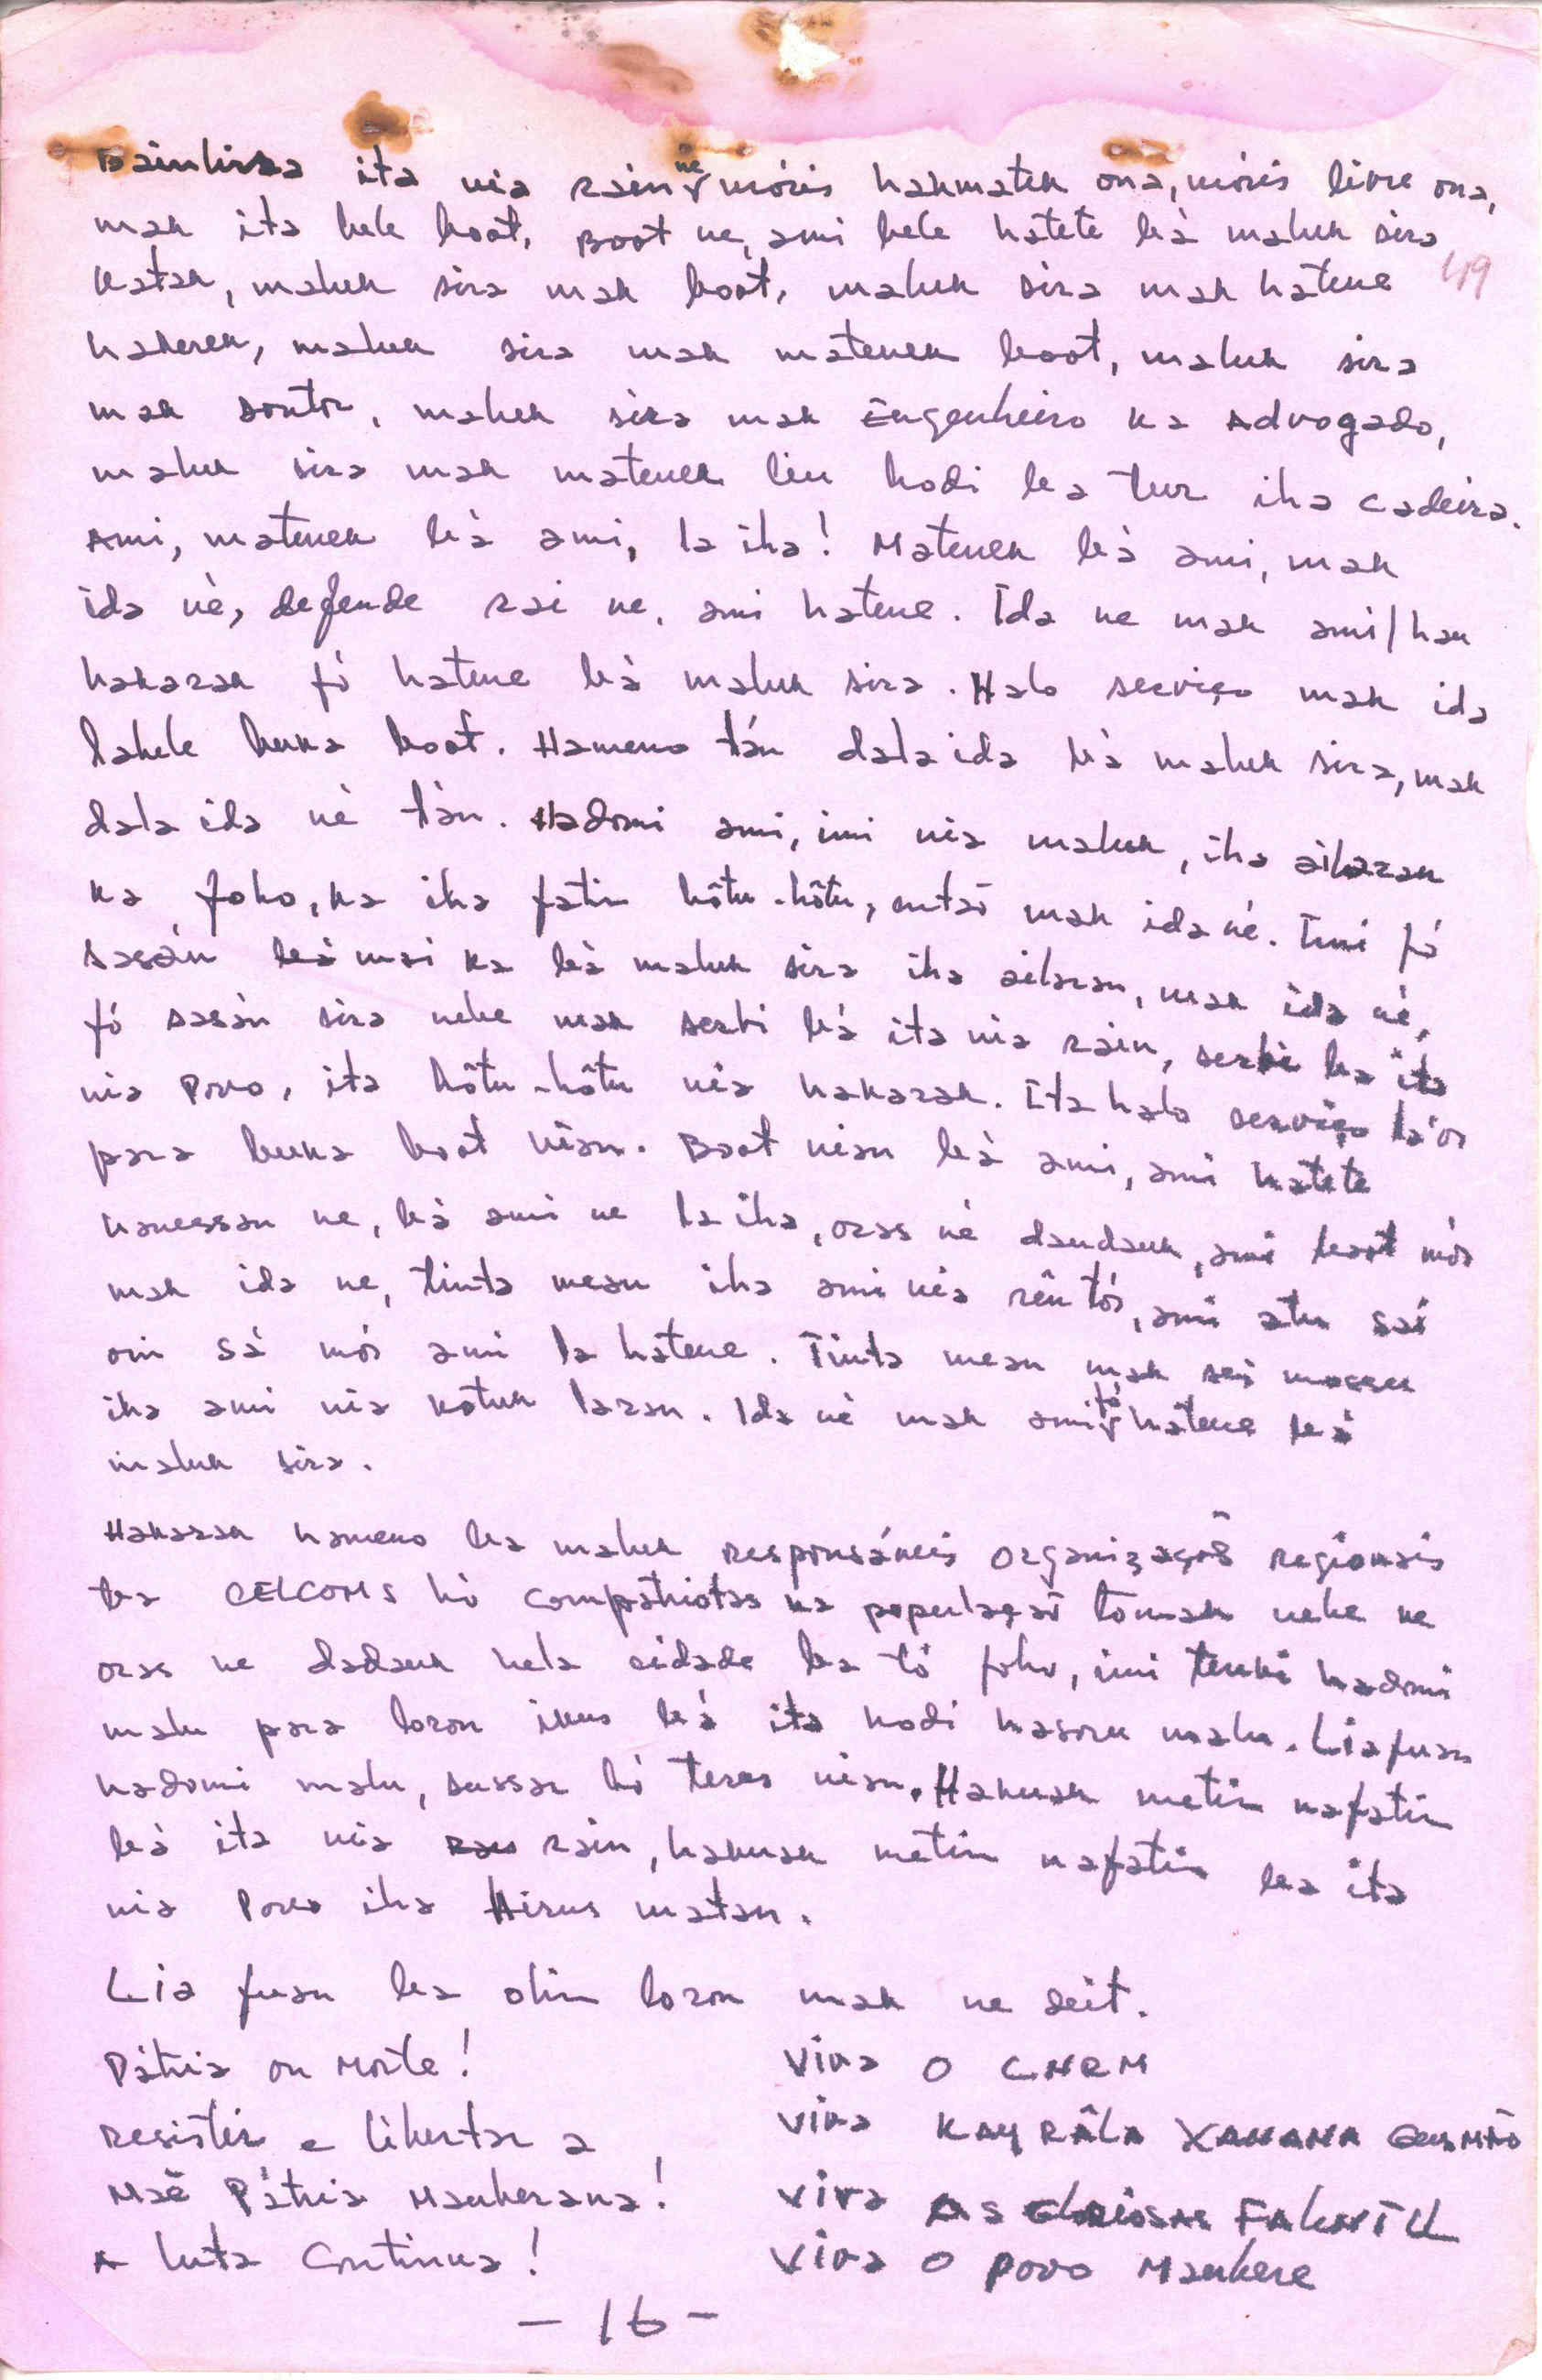 Bainhira ita nia rain ne móris hakmatek ona, móris livre ona,
mak ita bele boot. Boot ne, ami bele hatete bá maluk sira
katak, maluk sira mak boot, maluk sira mak hatene
49
hakerek, maluk sira mak matenek boot, maluk sira
mak doutor, maluk sira mak Engenheiro ka Advogado,
maluk sira mak matenek liu hodi ba tur iha cadeira.
Ami, matenek bá ami, la iha! Matenek bá ami, mak
ida né, defende rai ne, ami hatene. Ida ne mak ami/hau
hakarak fó hatene bá maluk sira. Halo serviço mak ida
labele buka boot. Hameno tán dala ida bá maluk sira, mak
dala ida né tán. Hadomi ami, imi nia maluk, iha ailaran
ka foho, ka iha fatin hôtu-hôtu, entaõ mak ida né. Imi fó
sasán mai ka bá maluk sira iha ailaran, mak ida né,
fó sasán sira nebe mak serbi bá ita nia rain, serbi ba ita
nia Povo, ita hôtu-hôtu nia hakarak. Ita halo serviço la'ós
para buka boot nian. Boot nian bá ami, ami hatete
hanessan ne, bá ami ne la iha, oras né daudauk, ami boot mós
mak ida ne, tinta mean iha ami nia rêntós, ami atu sai
oin sá mós ami la hatene. Tinta mean mak sei mossu
iha ami nia kotuk laran. Ida né mak ami fó hatene bá
maluk sira.
Hakarak hameno ba maluk responsáveis organizações regionais
ba CELCOMS hó compatriotas ka populaçaõ tomak nebe ne
oras ne dadauk hela cidade ba tó foho, imi tenki hadomi
malu para loron ikus bá ita hodi hasoru malu. Liafuan
hadomi malu, sussar hó teres nian. Hakuak metin nafatin
bá ita nia rain, hakuak metin nafatin ba ita
nia Povo iha Hirus matan.
Lia fuan ba ohin loron mak ne deit.
Pátria ou Morte!
Resistir e libertar a
Maẽ Pátria Mauberana!
A luta Continua!
Viva O CNRM
Viva KAY RÂLA XANANA GUSMÃO
Viva AS GLORIOSAS FALINTIL
Viva O povo Maubere
- 16 -